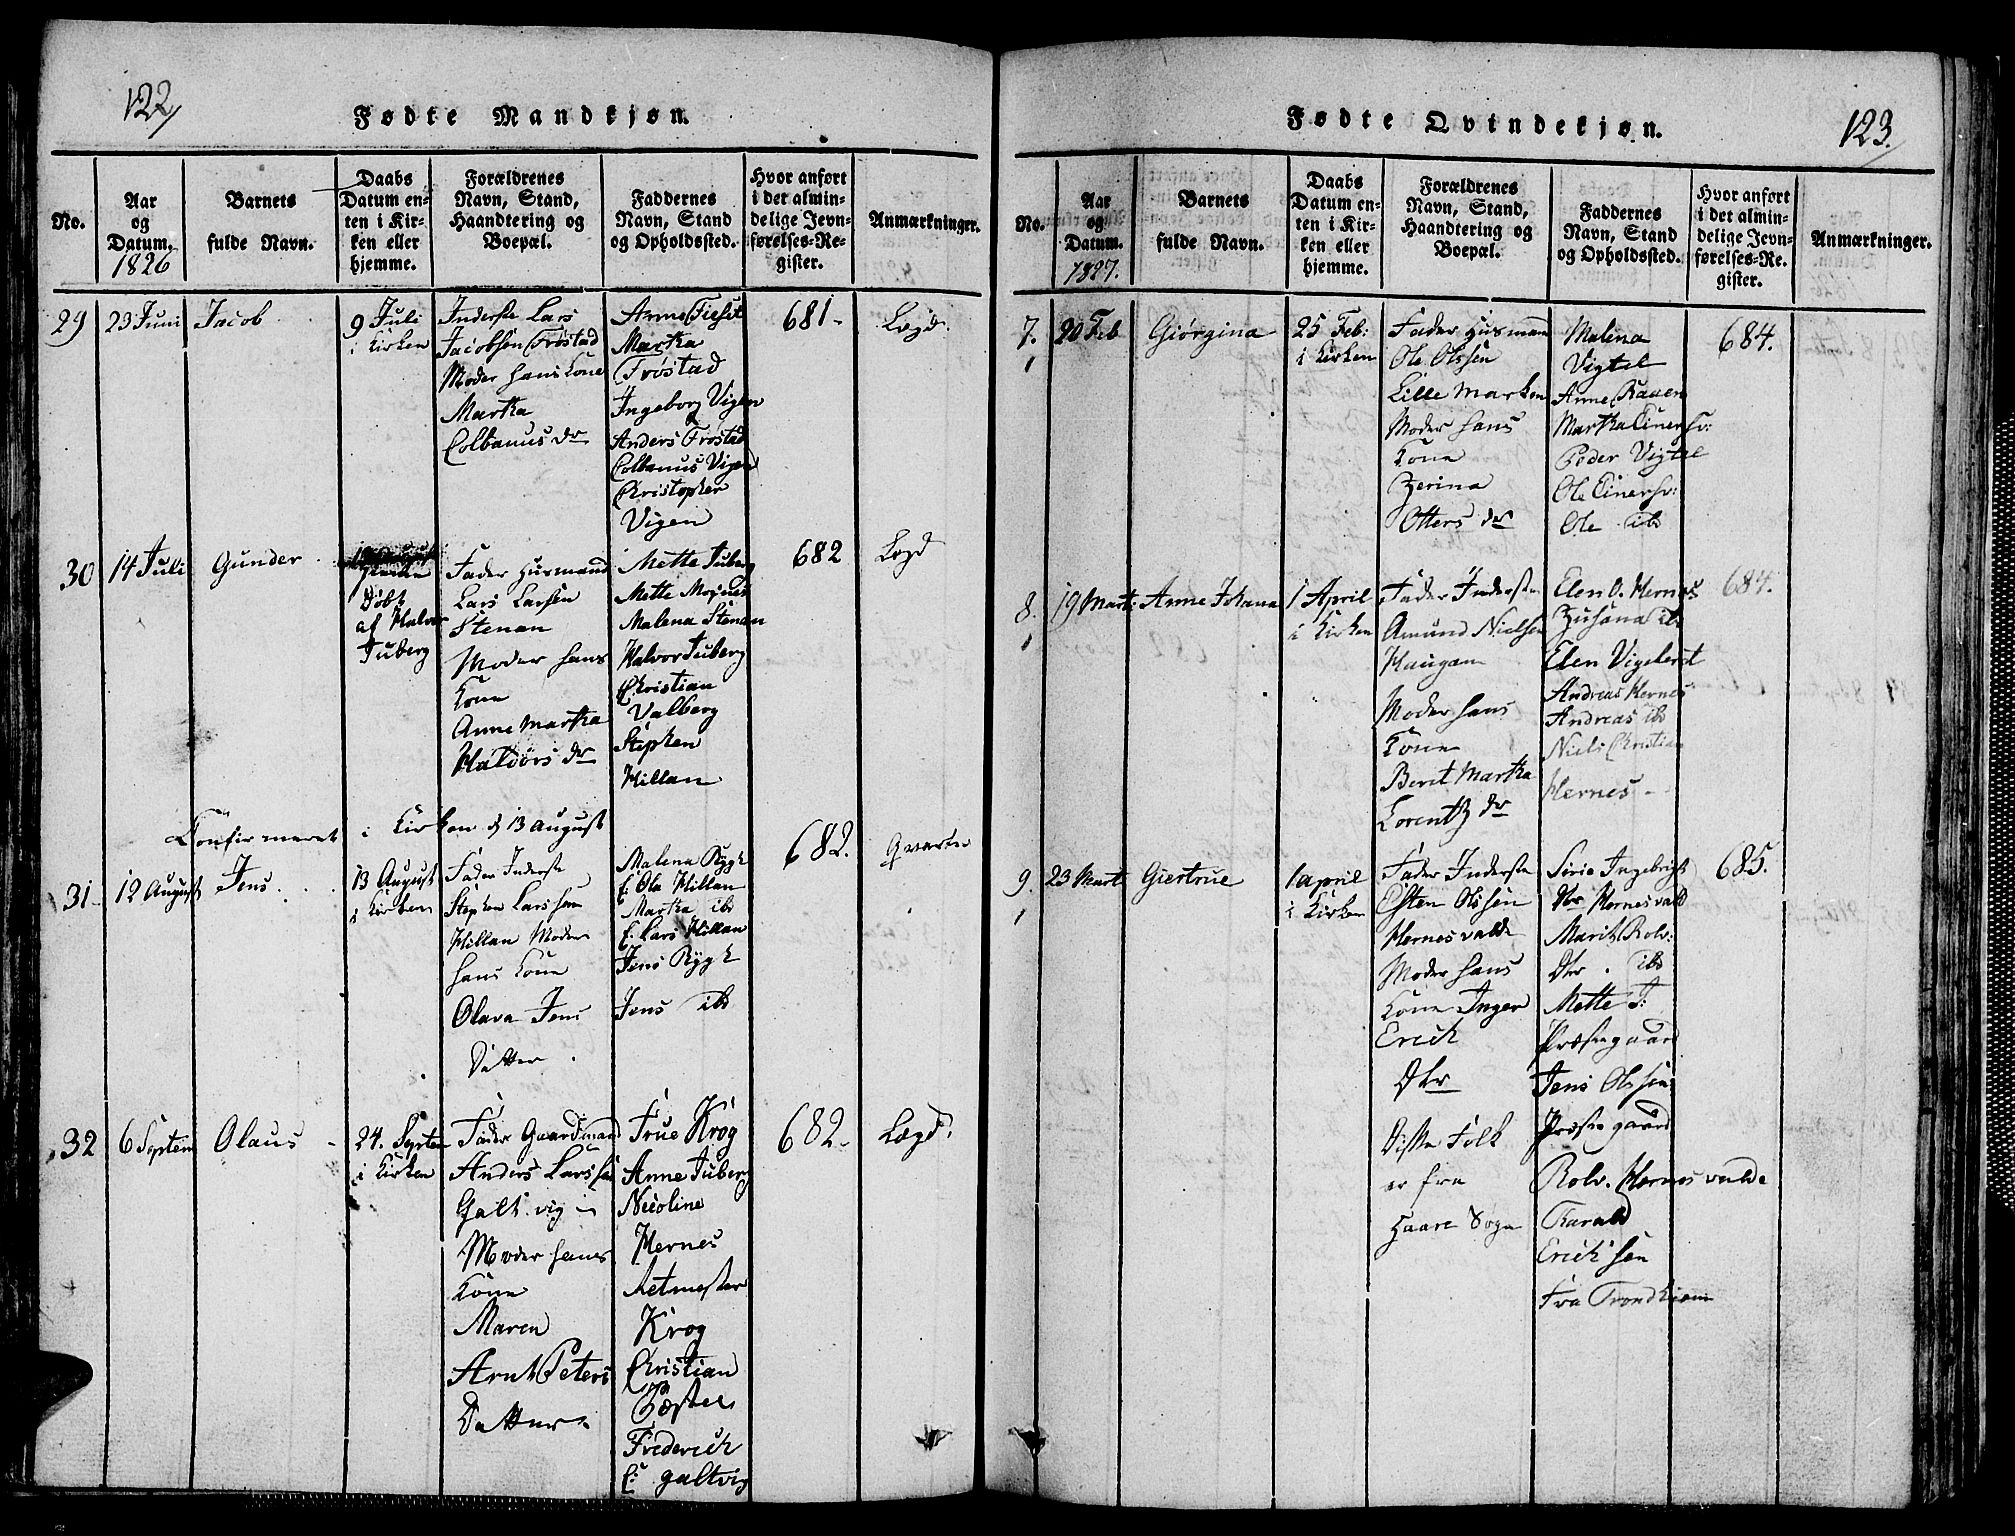 122/
Fødte Mandkjøn.
No.
Aar og Datum. 1826
Barnets fulde Navn.
Daabs Datum enten i Kirken eller hjemme.
Forældrenes Navn, Stand, Haandtering og Boepæl.
Faddernes Navn, Stand og Opholdssted.
Hvor anført i der almindelige Jevnførelses-Register.
Anmærkninger.
29
23 Juni
Jacob
9 Juli
i Kirken
Inderste Lars
Jacobsen Frøstad
Moder hans Kone
Martha
Colbanus dr
Anne
Martha
Frøstad
Ingeborg Vigen
Anders Frøstad
Colbanus Vigen
Christopher
Vigen
681-
Lægd.
30
14 Juli
Gunder
Hieme
Døbt
af Halvor
Tuberg
Fader Husmand
Lars Larsen
Stenan
Moder hans
Kone
Anne Martha
Haldors dr
Mette Tuberg
Mette
Malena Stenan
Halvor Tuberg
Christian
Valberg
Stephen
Hillan
682
Lægd
Confirmeret i Kirken d 13 august
31-
12 August
Jens
13 August
i Kirken
Fader Inderste
Stephen Larssen
Hillan Moder
hans Kone
Olava Jens
Datter
Malena Rygh
E: Ola Hillan
Martha ibd
E: Lars Hillan
Jens Rygh
Jens ibd
682.
Qvarten
32
6 Septem
Olaus
24. Septem
i Kirken
Fader Gaardmand
Anders Larssen
Galtvig
Moder hans
Kone
Maren
Arnt Peters
Datter
Frue Krog
Anne Tuberg
Nicoline
Hernes
Retmester
Krog
Christian
Frederich
E: galtvig
682-
Lægd.
Fødte Qvindekjøn.
123.
No.
Aar og Datum. 1827.
Barnets fulde Navn.
Daabs Datum enten i Kirken eller hjemme.
Forældrenes Navn, Stand, Haandtering og Boepæl.
Faddernes Navn, Stand og Opholdssted.
Hvor anført i det almindelige Jevnførelses-Register.
Anmærkninger.
7.
20 Feb
Giørgina
25 Feb:
i Kirken
Fader Husmand
Ole Olssen
Lille Marken
Moder hans
Kone
Zerina
Otters dr
Malena
Vigtel
Anne Raaen
Martha Einers
Peder Vigtel
Ole Einers
Ole ibd
684.
8.
19 Mart:
Anne Johana
1 April
i Kirken
Fader Inderste
Amund Nielsen
Haugan
Moder hans
Kone
Berit Martha
Lorentz dr
Elen O. Hernes
Zusana ibd
Elen
Andreas Hernes
Andreas ibd
Niels Christian
Hernes
684.
9.
23 Mart
Giertrue
1 april
i Kirken
Fader Inderste
Esten Olssen
Hernesvald
Moder hans
Kone Inger
Erich
Dtr
Disse Folk
er fra
Haare Sogn
Siri Ingebrigt
Dtr Hernesvald
Marit Rolv:
Dtr ibd
Mette J:
Præstegaard
Jens Olssen
Præstegaard
Rolv. Hernesvald
Harald
Erichsen
Fra Trondhiem
685.